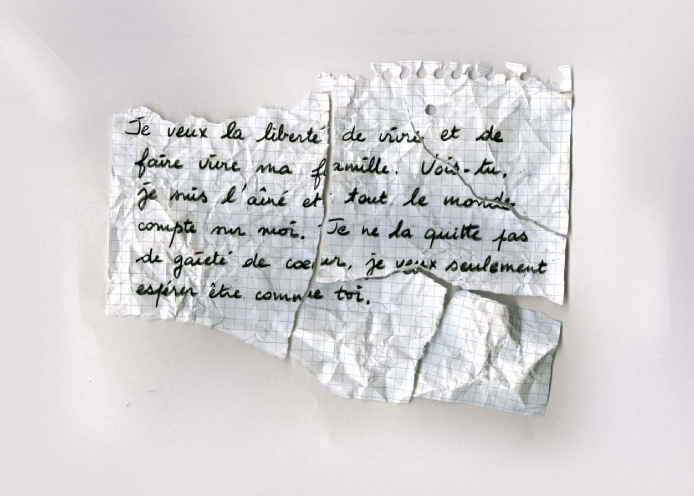 Je veux la liberté de vivre et de
faire vivre ma famille. Vois-tu,
je suis l'aîné et tout le monde
compte sur moi. Je ne la quitte pas
de gaieté de coeur, je veux seulement
espérer être comme toi.